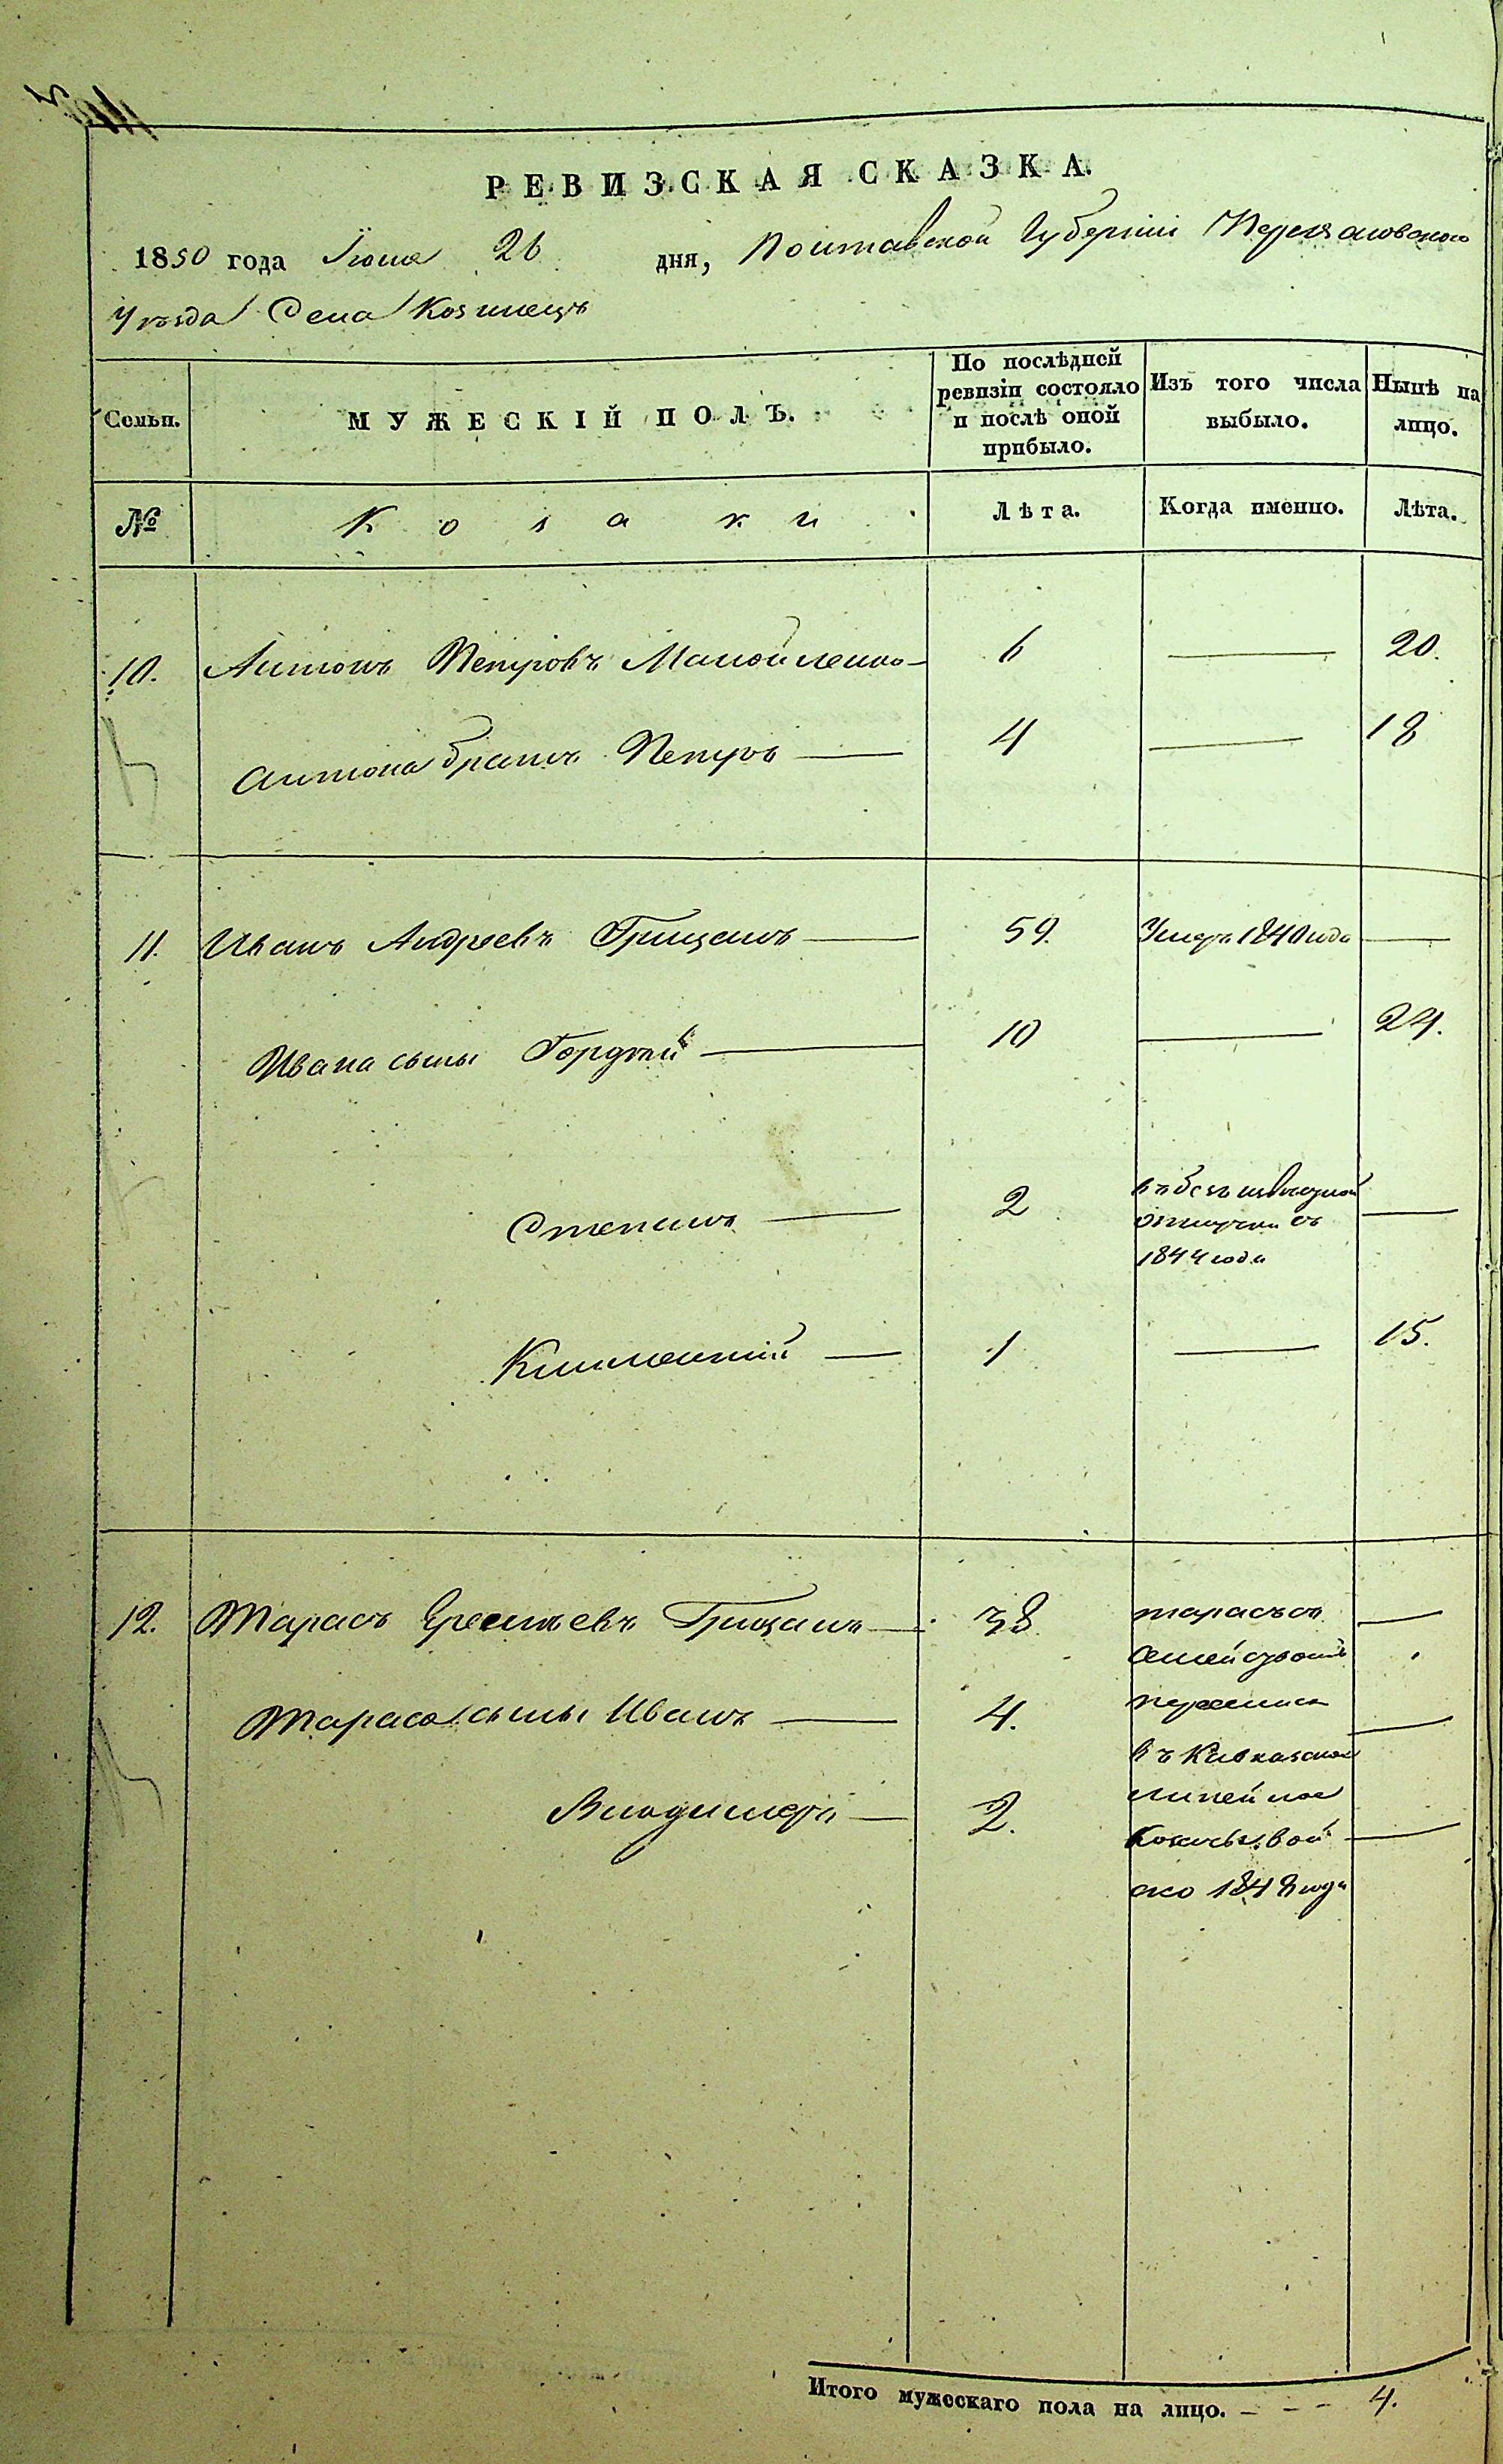 РЕВИЗСКАЯ СКАЗКА.
1850 года Іюня 26 дня, Полтавской Губерніи Переяславского
Уѣзда Села Козинецъ
Семьи. МУЖЕСКІЙ ПОЛЪ. По послѣдней ревизіи состояло и послѣ оной прибыло. Изъ того числа выбыло. Нынѣ на лицо.
№ Козаки Лѣта. Когда именно. Лѣта.
10. Антонъ Петровъ Манойленко 6 — 20.
Антона братъ Петръ — 4 — 18
11. Иванъ Андреевъ Грицанъ — 59. Умеръ 1840 года —
Ивана сыны Гордѣй — 10 — 24.
Степанъ — 2 въ безъизвѣстной отлучки съ 1844 года —
Климентій — 1 — 15.
12. Тарасъ Ереміевъ Грицанъ — 38 тарасъ съ —
семействомъ
Тараса сыны Иванъ — 4. —
въ Кавказское
Владимеръ — 2. линейное
Козачье вой —
ско 1848 года
Итого мужескаго пола на лицо. - - - 4.